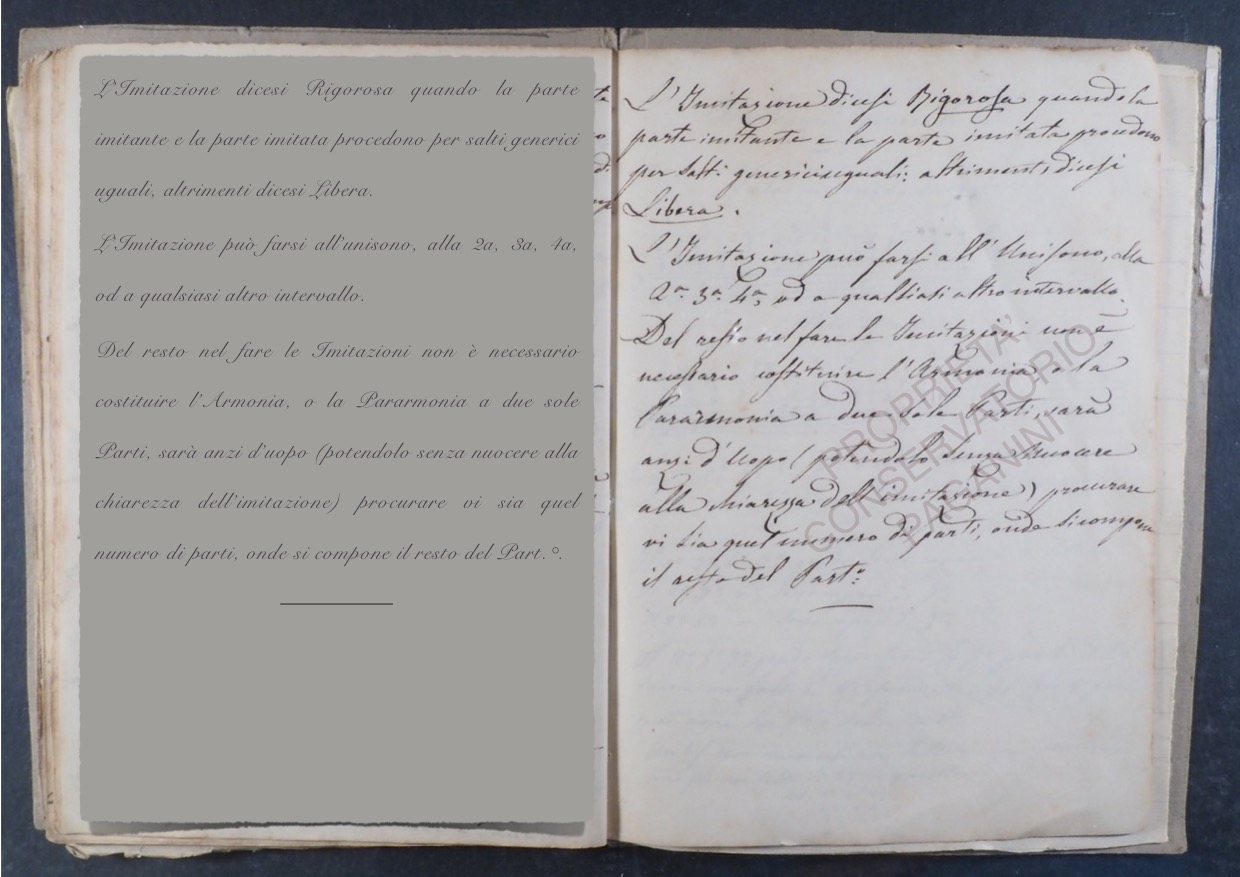 L'Imitazione dicesi Rigorosa quando la parte
imitante e la parte imitata procedono per salti generici
uguali, altrimenti dicesi Libera.
L'Imitazione può farsi all'unisono, alla 2a, 3a, 4a,
od a qualsiasi altro intervallo.
Del resto nel fare le Imitazioni non è necessario
costituire l'Armonia, o la Pararmonia a due sole
Parti, sarà anzi d'uopo (potendolo senza nuocere alla
chiarezza dell'imitazione) procurare vi sia quel
numero di parti, onde si compone il resto del Part.°.
L'Imitazione dicesi Rigorosa quando la
parte imitante e la parte imitata procedono
per salti generici uguali; altrimenti dicesi
Libera.
L'Imitazione può farsi all'Unisono, alla
2a. 3a. 4a, od a qualsiasi altro intervallo.
Del resto nel fare le Imitazioni non è
necessario costituire l'Armonia o la
Pararmonia a due sole Parti, sarà
anzi d'Uopo (potendolo senza Nuocere
alla chiarezza dell'imitazione) procurare
vi sia quel numero di parti, onde si compone
il resto del Part.°
PROPRIETA'
CONSERVATORIO
PAGANINI